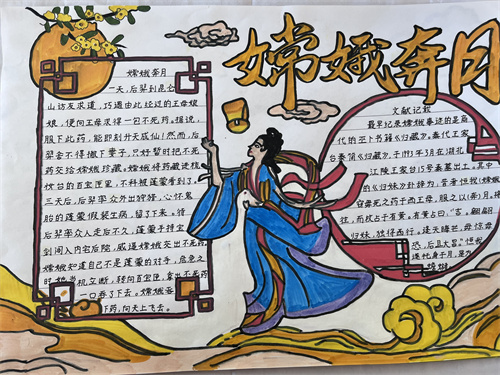 嫦娥奔月
嫦娥奔月
一天,后羿到昆仑
山访友求道,巧遇由此经过的王母娘
娘,便向王母求得一包不死药。据说,
服下此药,能即刻升天成仙!然而,后
羿舍不得撇下妻子,只好暂时把不死
药交给嫦娥珍藏。嫦娥将药藏进梳
妆台的百宝匣里,不料被蓬蒙看到了。
三天后,后羿率众外出狩猎,心怀鬼
胎的蓬蒙假装生病,留了下来。待
后羿率众人走后不久,蓬蒙手持宝
剑闯入内宅后院,威逼嫦娥交出不死药
嫦娥知道自己不是蓬蒙的对手,危急之
时她当机立断,转向百宝匣,拿出不死药
一口吞了下去。嫦娥吞
下药,向天上飞去。
文献记载
最早纪录嫦娥奔逃的是商
代的巫卜书籍《归藏》。秦代王家
台秦简《归藏》,于1993年3月在湖北
江陵王家台15号秦墓出土。其中
的《归妹》卦辞为:昔者恒我(嫦娥)
窃毋死之药于西王母,服之以(奔)月。将
往,而枚占于有黄。有黄占曰:“吉。翩翩
归妹,独将西行。逢天晦芒,毋惊毋
恐,后且大昌。”恒我
遂托身于月,是为
蟾蜍